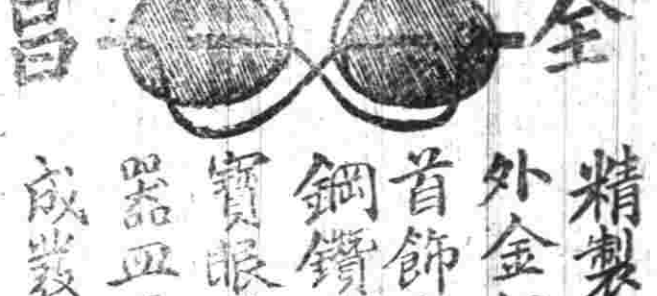 全昌
精製
外金
首飾
鋼鑽
寶眼
器皿
成發